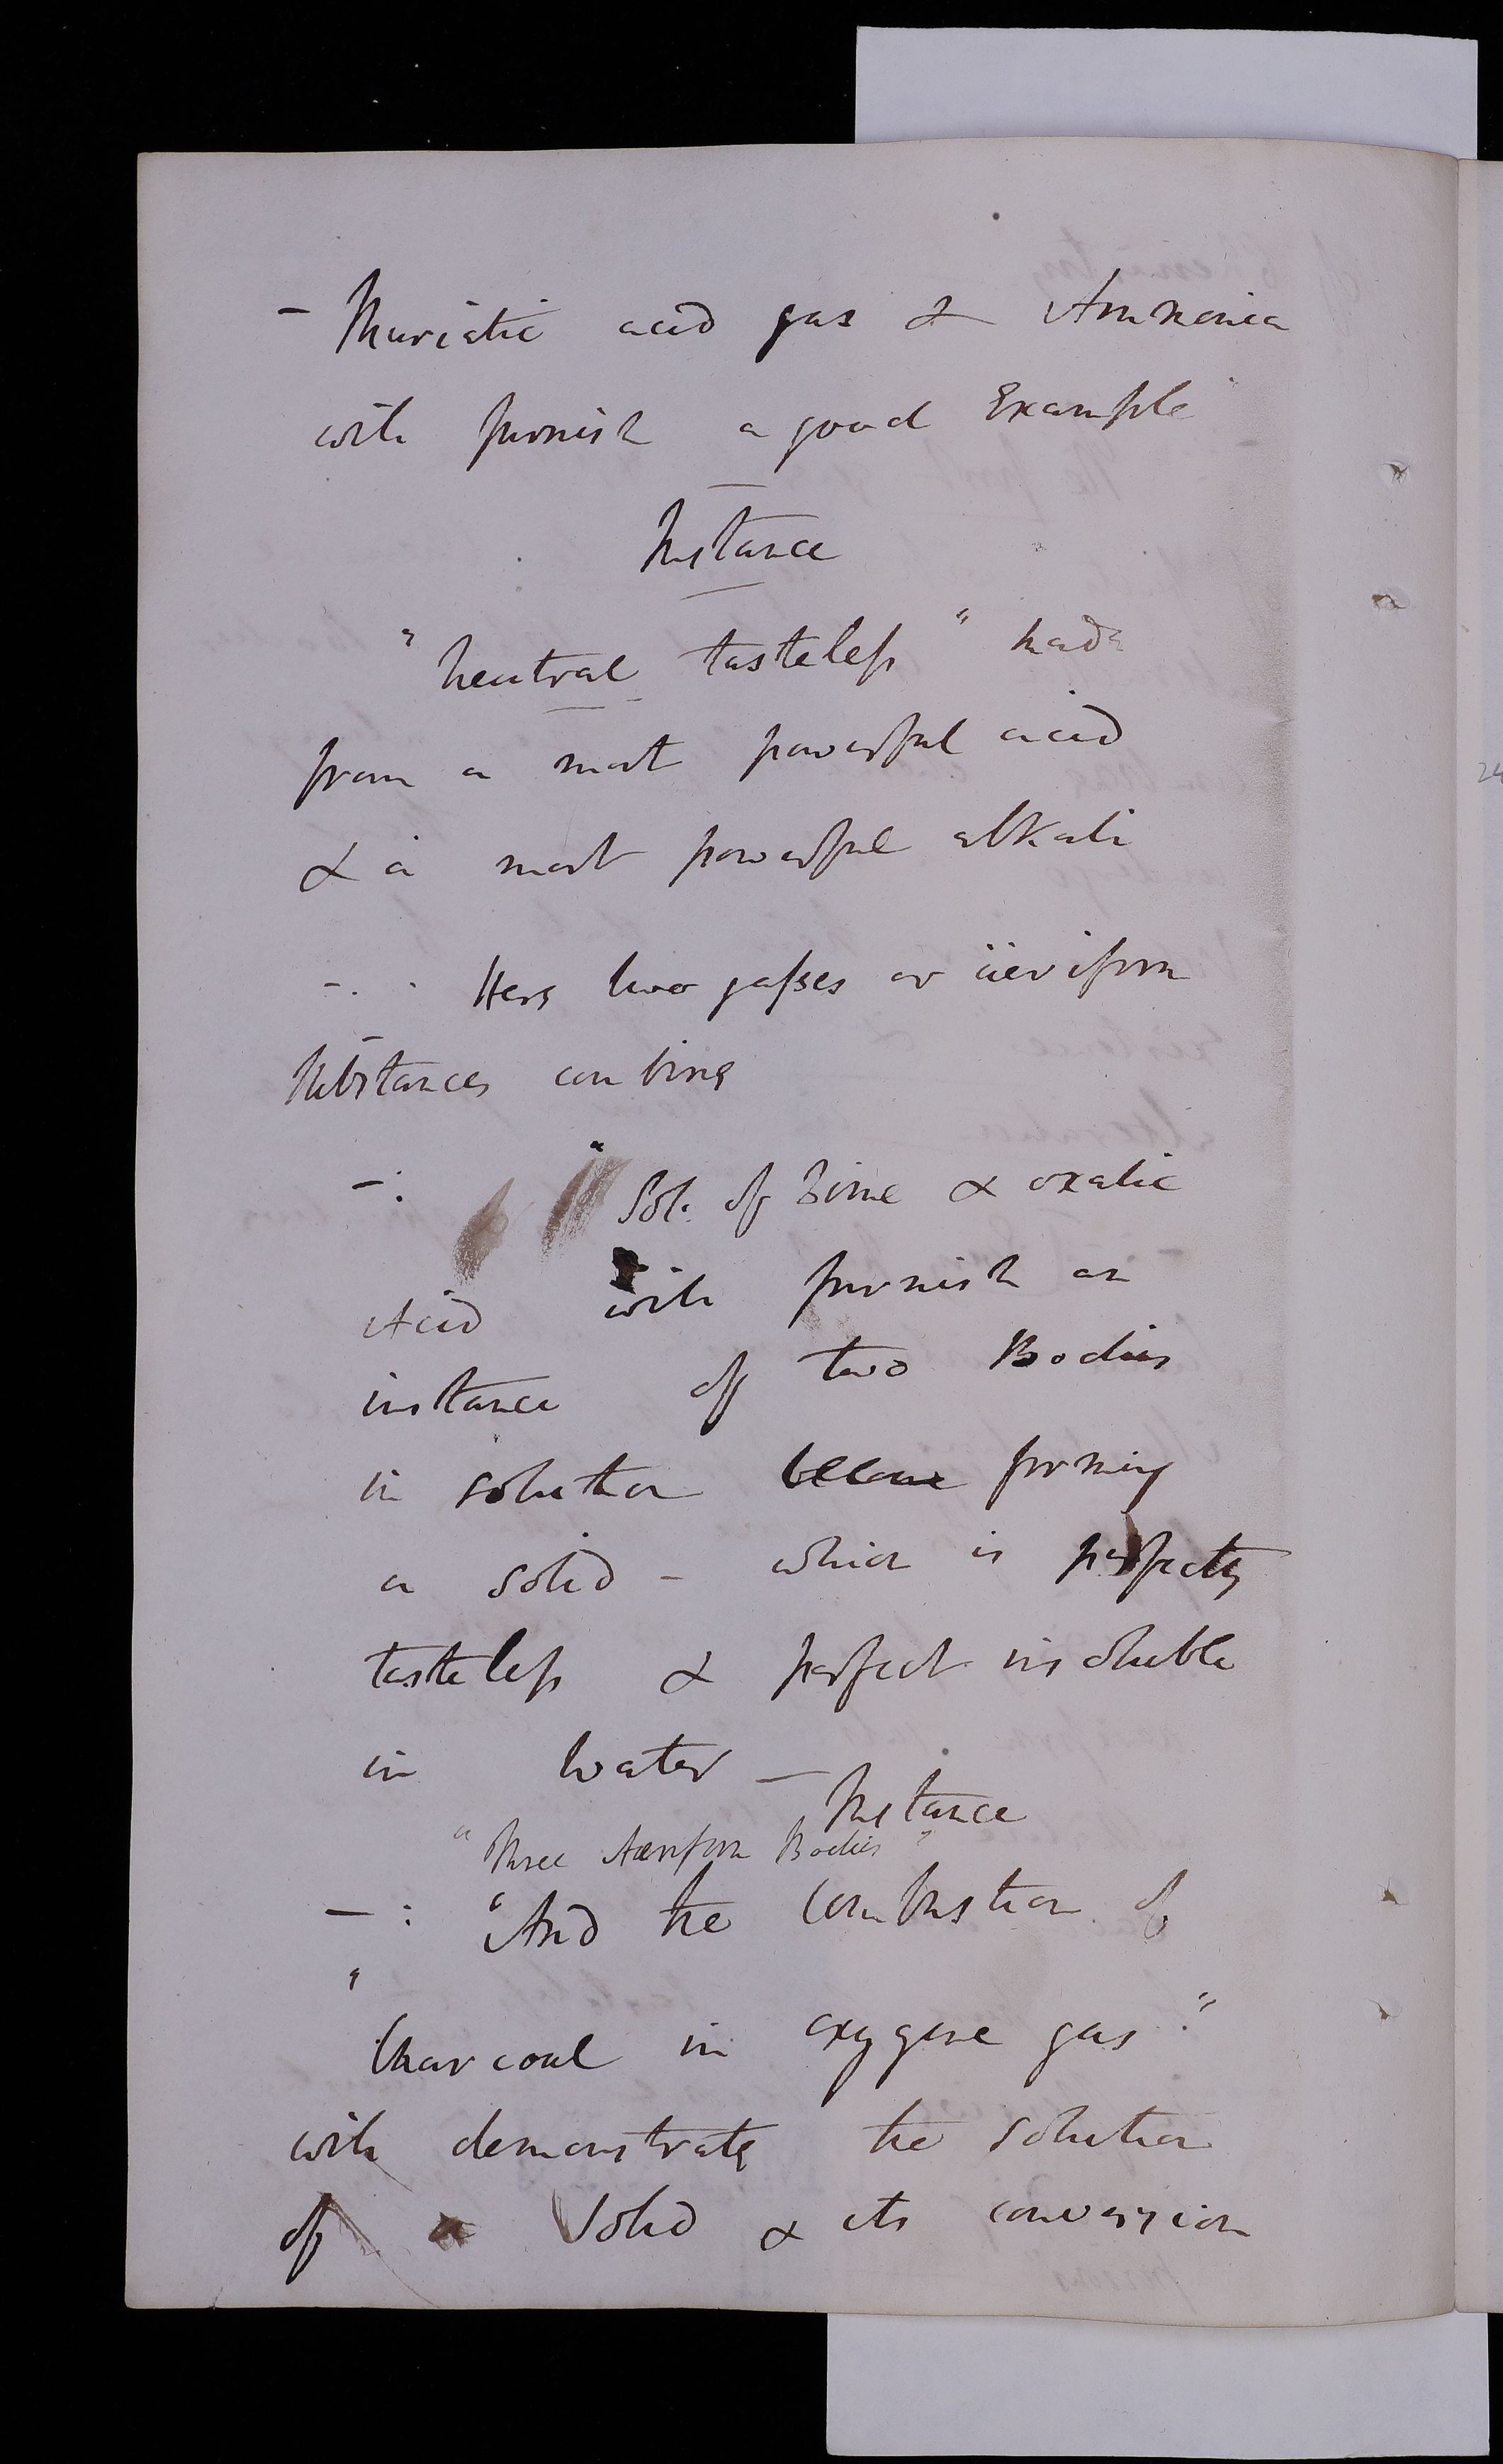 - Muriatic acid gas & Ammonia
will furnish a good Example
Instance
"neutral tasteless" made
from a most powerful acid
& a most powerful alkali
-. . Here two gasses or äeriform
Substances combine
-: "Sol. of Lime & oxalic
Acid will furnish an
instance of two Bodies
in solution become forming
a solid - which is perfectly
tasteless & perfect insoluble
in water —
Instance
"Three Aeriform Bodies"
- : "And the Combustion of
"Charcoal in oxygene gas."
will demonstrate the solution
of a Solid & its conversion